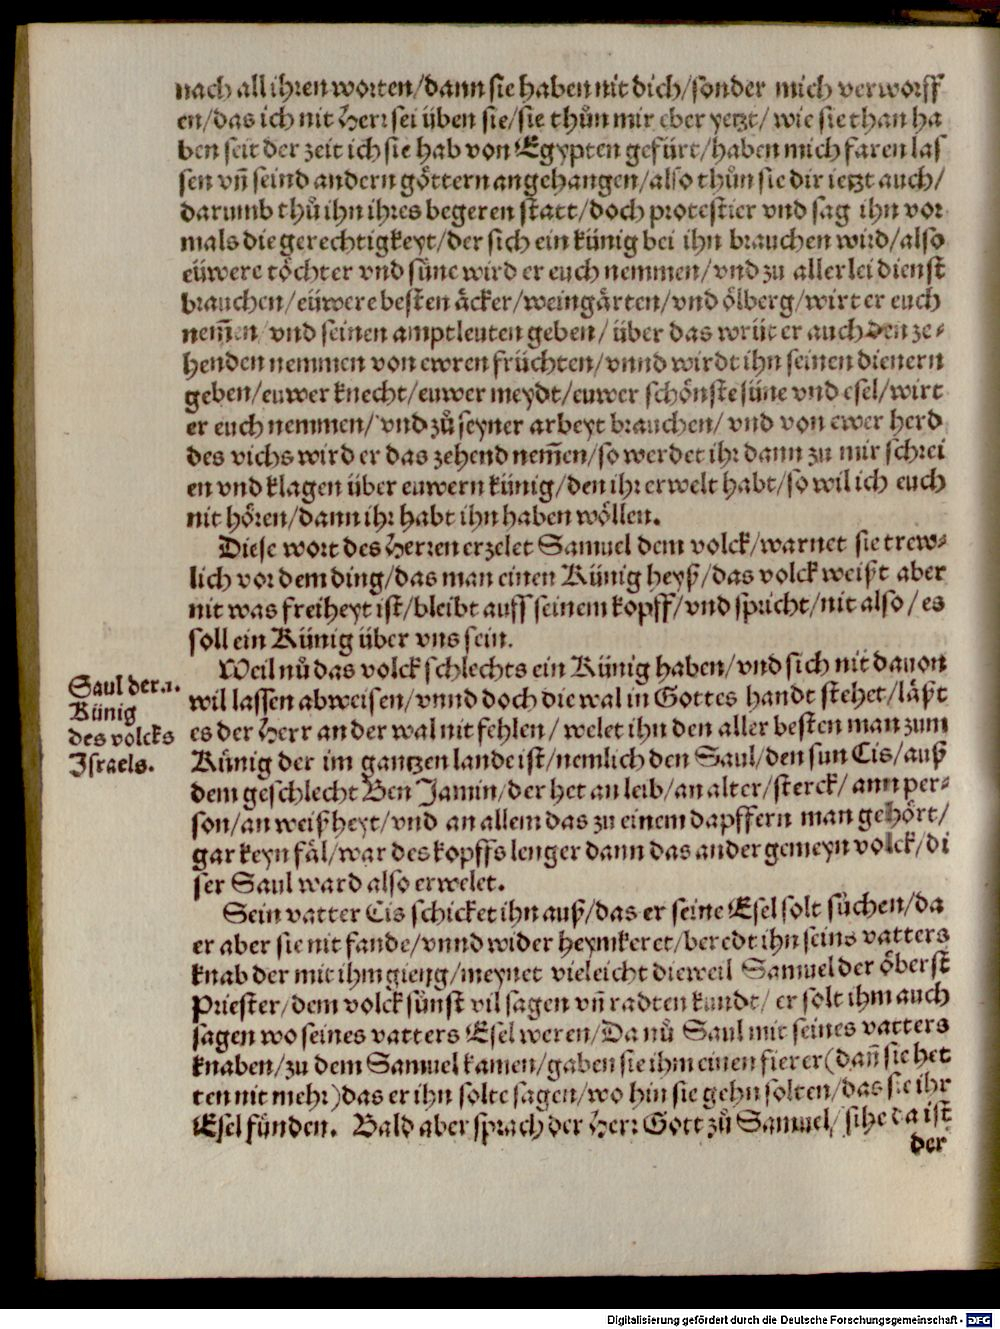 nach all ihren worten/dann sie haben nit dich/sonder mich verworff
en/das ich nit Herr sei üben sie/sie thůn mir eber yetzt/ wie sie than ha
ben seit der zeit ich sie hab von Egypten gefürt/haben mich faren las
sen vñ seind andern göttern angehangen/also thůn sie dir ietzt auch/
darumb thů ihn ihres begeren statt/doch protestier vnd sag ihn vor
mals die gerechtigkeyt/der sich ein künig bei ihn brauchen wird/also
eüwere töchter vnd süne wird er euch nemmen/vnd zu allerlei dienst
brauchen/eüwere besten äcker/weingärten/vnd ölberg/wirt er euch
nem̃en/vnd seinen amptleuten geben/ über das würt er auch den ze-
henden nemmen von ewren früchten/vnnd wirdt ihn seinen dienern
geben/euwer knecht/euwer meydt/euwer schönste süne vnd esel/wirt
er euch nemmen/vnd zů seyner arbeyt brauchen/ vnd von ewer herd
des vichs wird er das zehend nem̃en/so werdet ihr dann zu mir schrei
en vnd klagen über euwern künig/den ihr erwelt habt/so wil ich euch
nit hören/dann ihr habt ihn haben wöllen.
Diese wort des Herren erzelet Samuel dem volck/warnet sie trew-
lich vor dem ding/das man einen Künig heyß/das volck weißt aber
nit was freiheyt ist/bleibt auff seinem kopff/vnd spricht/nit also/es
soll ein Künig über vns sein.
Weil nů das volck schlechts ein Künig haben/vnd sich nit dauon
wil lassen abweisen/vnnd doch die wal in Gottes handt stehet/läßt
es der Herr an der wal nit fehlen/ welet ihn den aller besten man zum
Künig der im gantzen lande ist/nemlich den Saul/den sun Cis/auß
dem geschlecht Ben Jamin/der het an leib/an alter/sterck/ ann per-
son/an weißheyt/vnd an allem das zu einem dapffern man gehört/
gar keyn fäl/war des kopffs lenger dann das ander gemeyn volck/di
ser Saul ward also erwelet.
Saul der 1.
Künig
des volcks
Israels.
Sein vatter Cis schicket ihn auß/das er seine Esel solt süchen/da
er aber sie nit fande/vnnd wider heymkeret/beredt ihn seins vatters
knab der mit ihm gieng/meynet vieleicht dieweil Samuel der öberst
Priester/dem volck sünst vil sagen vñ radten kundt/ er solt ihm auch
sagen wo seines vatters Esel weren/Da nů Saul mit seines vatters
knaben/zu dem Samuel kamen/gaben sie ihm einen fierer(dañ sie het
ten nit mehr)das er ihn solte sagen/wo hin sie gehn solten/das sie ihr
Esel fünden. Bald aber sprach der Herr Gott zů Samuel/ sihe da ist
der
Digitalisierung gefördert durch die Deutsche Forschungsgemeinschaft - DFG